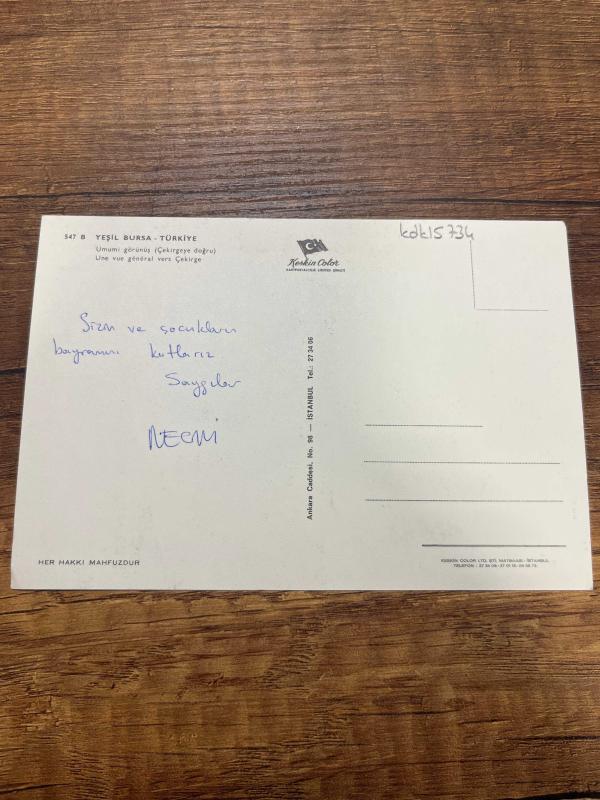 547 B YEŞİL BURSA - TÜRKİYE
Umumi görünüş (Çekirgeye doğru)
Une vue général vers Çekirge
Keskin Color
KARTPOSTALCILIK LİMİTED ŞİRKETİ
kdk15734
Sizin ve çocukların
bayramını kutlarız
Saygılar
NECMİ
Ankara Caddesi, No. 98 — İSTANBUL Tel.: 27 34 06
HER HAKKI MAHFUZDUR
KESKİN COLOR LTD. ŞTİ. MATBAASI - İSTANBUL
TELEFON :